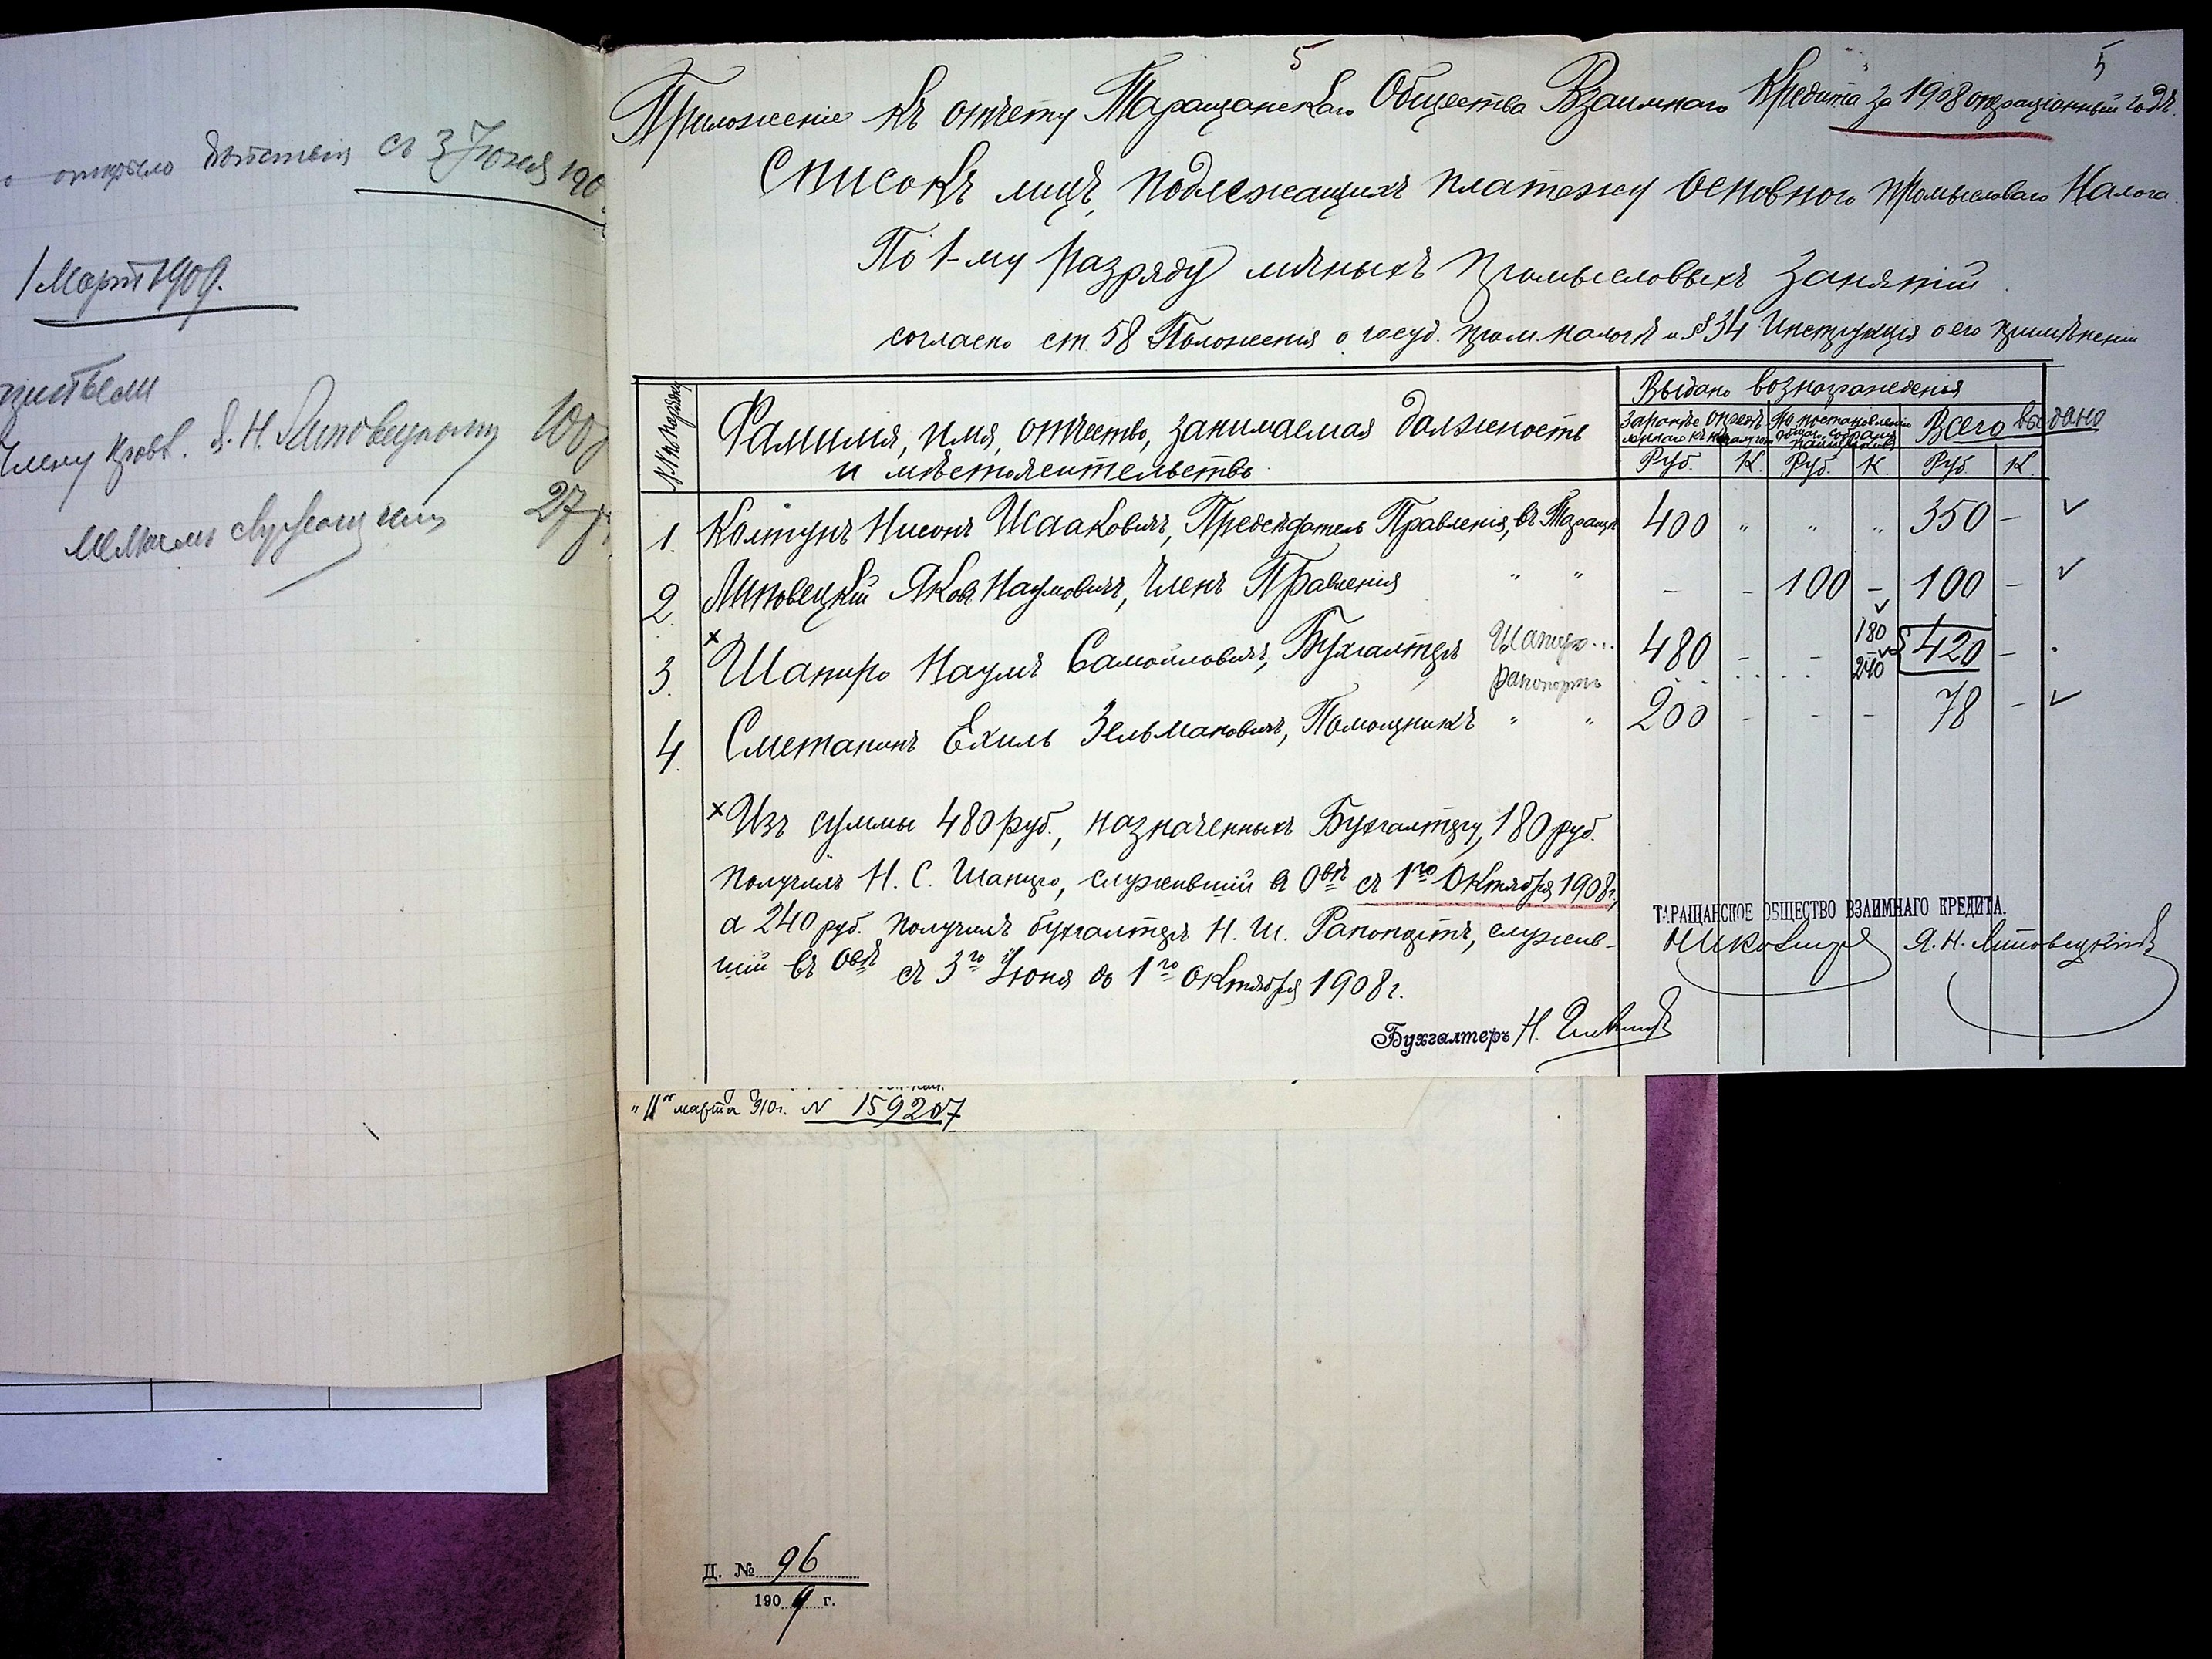 открыло действія съ 3 Іюня 190
1 Март 1909.
Члену Правл. Я. Н. Липовецкому 100
27
5
5
Приложеніе къ отчету Таращанскаго Общества Взаимнаго Кредита за 1908 операціонный годъ.
Списокъ лицъ, подлежащихъ платежу основного промысловаго Налога
По 1-му разряду личныхъ промысловыхъ занятій
согласно ст. 58 Положенія о госуд. пром. налогѣ и § 34 Инструкціи о его примѣненіи
№№ по порядку
Фамилія, имя, отчество, занимаемая должность
и мѣстожительство
Выдано вознагражденія
Заранѣе опредѣленнаго
По постановленію общаго собранія
Всего выдано
Руб. К. Руб. К. Руб. К.
1. Колтунъ Нисонъ Исааковичъ, Предсѣдатель Правленія, въ Таращѣ 400 " " " 350 –
2. Липовецкій Яковъ Наумовичъ, Членъ Правленія " " – – 100 – 100 –
3. × Шапиро Наумъ Самойловичъ, Бухгалтеръ Шапиро... 480 – – 180 420 –
Рапопортъ 240
4. Сметанинъ Ехиль Зельмановичъ, Помощникъ " " 200 – – – 78 –
× Изъ суммы 480 руб., назначенныхъ Бухгалтеру, 180 руб.
получилъ Н. С. Шапиро, служившій въ Обвѣ съ 1го Октября 1908 г.,
а 240 руб. получилъ бухгалтеръ Н. Ш. Рапопортъ, служив-
шій въ Обвѣ съ 3го Іюня до 1го Октября 1908 г.
ТАРАЩАНСКОЕ ОБЩЕСТВО ВЗАИМНАГО КРЕДИТА.
Я. Н. Липовецкій
Бухгалтеръ Н.
"11го марта 910 г. № 159207
Д. № 96
1909 г.